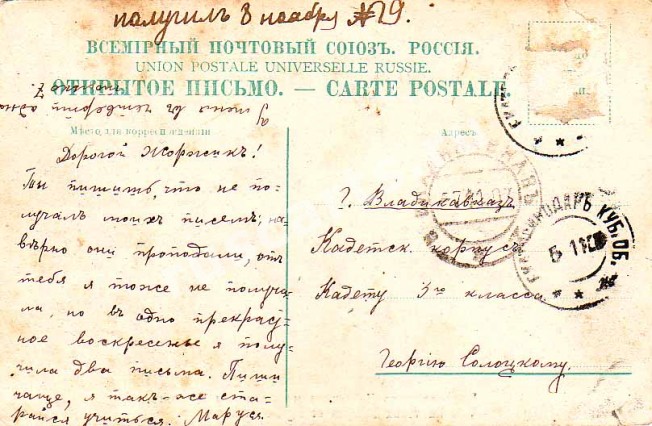 получилъ 8 ноября № 29.
ВСЕМІРНЫЙ ПОЧТОВЫЙ СОЮЗЪ. РОССІЯ.
UNION POSTALE UNIVERSELLE RUSSIE.
ОТКРЫТОЕ ПИСЬМО. — CARTE POSTALE
Мѣсто для корреспонденціи
Адресъ
Дорогой Жоржикъ!
Ты пишешь, что не по-
лучалъ моихъ писемъ; на-
вѣрно они пропадали, отъ
тебя я тоже не получа-
ла, но въ одно прекрас-
ное воскресенье я полу-
чила два письма. Пиши
чаще, я такъ-же ста-
райся учиться. Маруся
г. Владикавказъ
Кадетск. корпусъ
Кадету 3го класса
Георгію Солоцкому.
ЕКАТЕРИНОДАРЪ КУБ. ОБ.